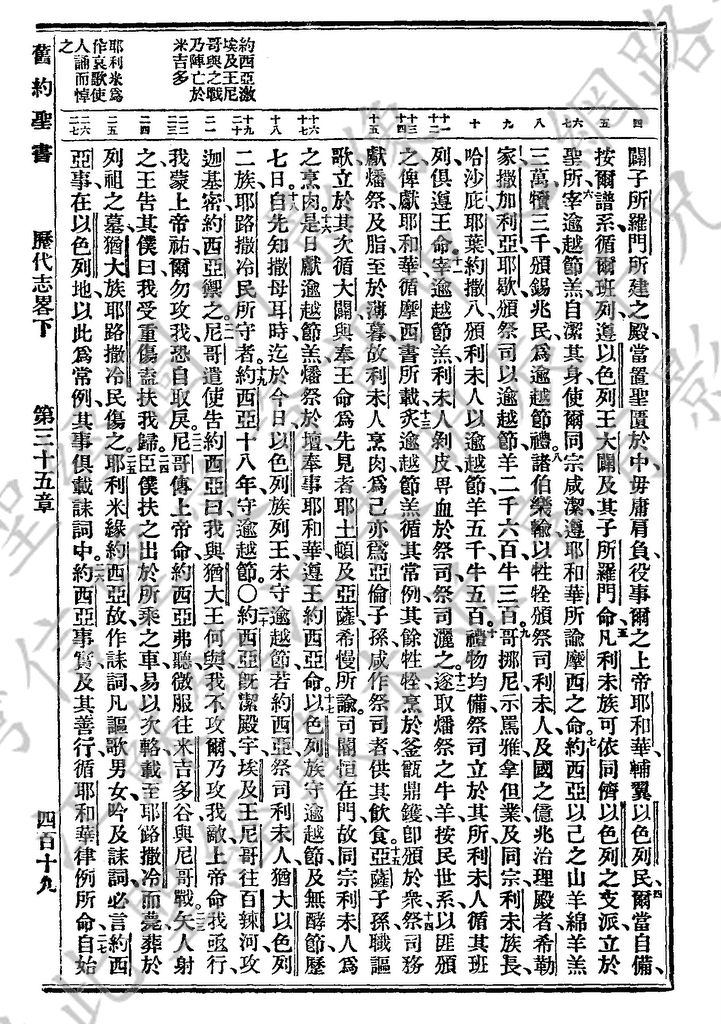 舊約聖書　歷代志畧下　第三十五章　四百十九
約西亞激
埃及王尼
哥與之戰
乃陣亡於
米吉多
耶利米爲
作哀歌使
人誦而悼
之
四
五
六七
八
九
十
十一十二
十三十四
十五
十六十七
十八
十九二十
二一
二二二三
二四
二五
二六二七
闢子所羅門所建之殿當置聖匱於中毋庸肩負役事爾之上帝耶和華輔翼以色列民四爾當自備、
按爾譜系循爾班列遵以色列王大闢及其子所羅門命五凡利未族可依同儕以色列之支派立於
聖所六宰逾越節羔自潔其身使爾同宗咸潔遵耶和華所諭摩西之命七約西亞以己之山羊綿羊羔
三萬犢三千頒錫兆民爲逾越節禮八諸伯樂輸以牲牷頒祭司利未人及國之億兆治理殿者希勒
家撒加利亞耶歇頒祭司以逾越節羊二千六百牛三百九哥挪尼示罵雅拿但業及同宗利未族長
哈沙庇耶葉約撒八頒利未人以逾越節羊五千牛五百十禮物均備祭司立於其所利未人循其班
列俱遵王命十一宰逾越節羔利未人剝皮畀血於祭司祭司灑之十二遂取燔祭之牛羊按民世系以匪頒
之俾獻耶和華循摩西書所載十三炙逾越節羔循其常例其餘牲牷烹於釜甑鼎鑊卽頒於衆十四祭司務
獻燔祭及脂至於薄暮故利未人烹肉爲己亦爲亞倫子孫咸作祭司者供其飲食十五亞薩子孫職謳
歌立於其次循大闢與奉王命爲先見者耶土頓及亞薩希慢所諭司閽恒在門故同宗利未人爲
之烹肉十六是日獻逾越節羔燔祭於壇奉事耶和華遵王約西亞命十七以色列族守逾越節及無酵節歷
七日十八自先知撒母耳時迄於今日以色列族列王未守逾越節若約西亞祭司利未人猶大以色列
二族耶路撒冷民所守者十九約西亞十八年守逾越節〇二十約西亞旣潔殿宇埃及王尼哥往百辣河攻
迦基密約西亞禦之二一尼哥遣使告約西亞曰我與猶大王何與我不攻爾乃攻我敵上帝命我亟行
我蒙上帝祐爾勿攻我恐自取戾二二尼哥傳上帝命約西亞弗聽微服往米吉多谷與尼哥戰二三矢人射
之王告其僕曰我受重傷盍扶我歸二四臣僕扶之出於所乘之車易以次輅載至耶路撒冷而薨葬於
列祖之墓猶大族耶路撒冷民傷之二五耶利米緣約西亞故作誄詞凡謳歌男女吟及誄詞必言約西
亞事在以色列地以此爲常例其事俱載誄詞中二六約西亞事實及其善行循耶和華律例所命二七自始